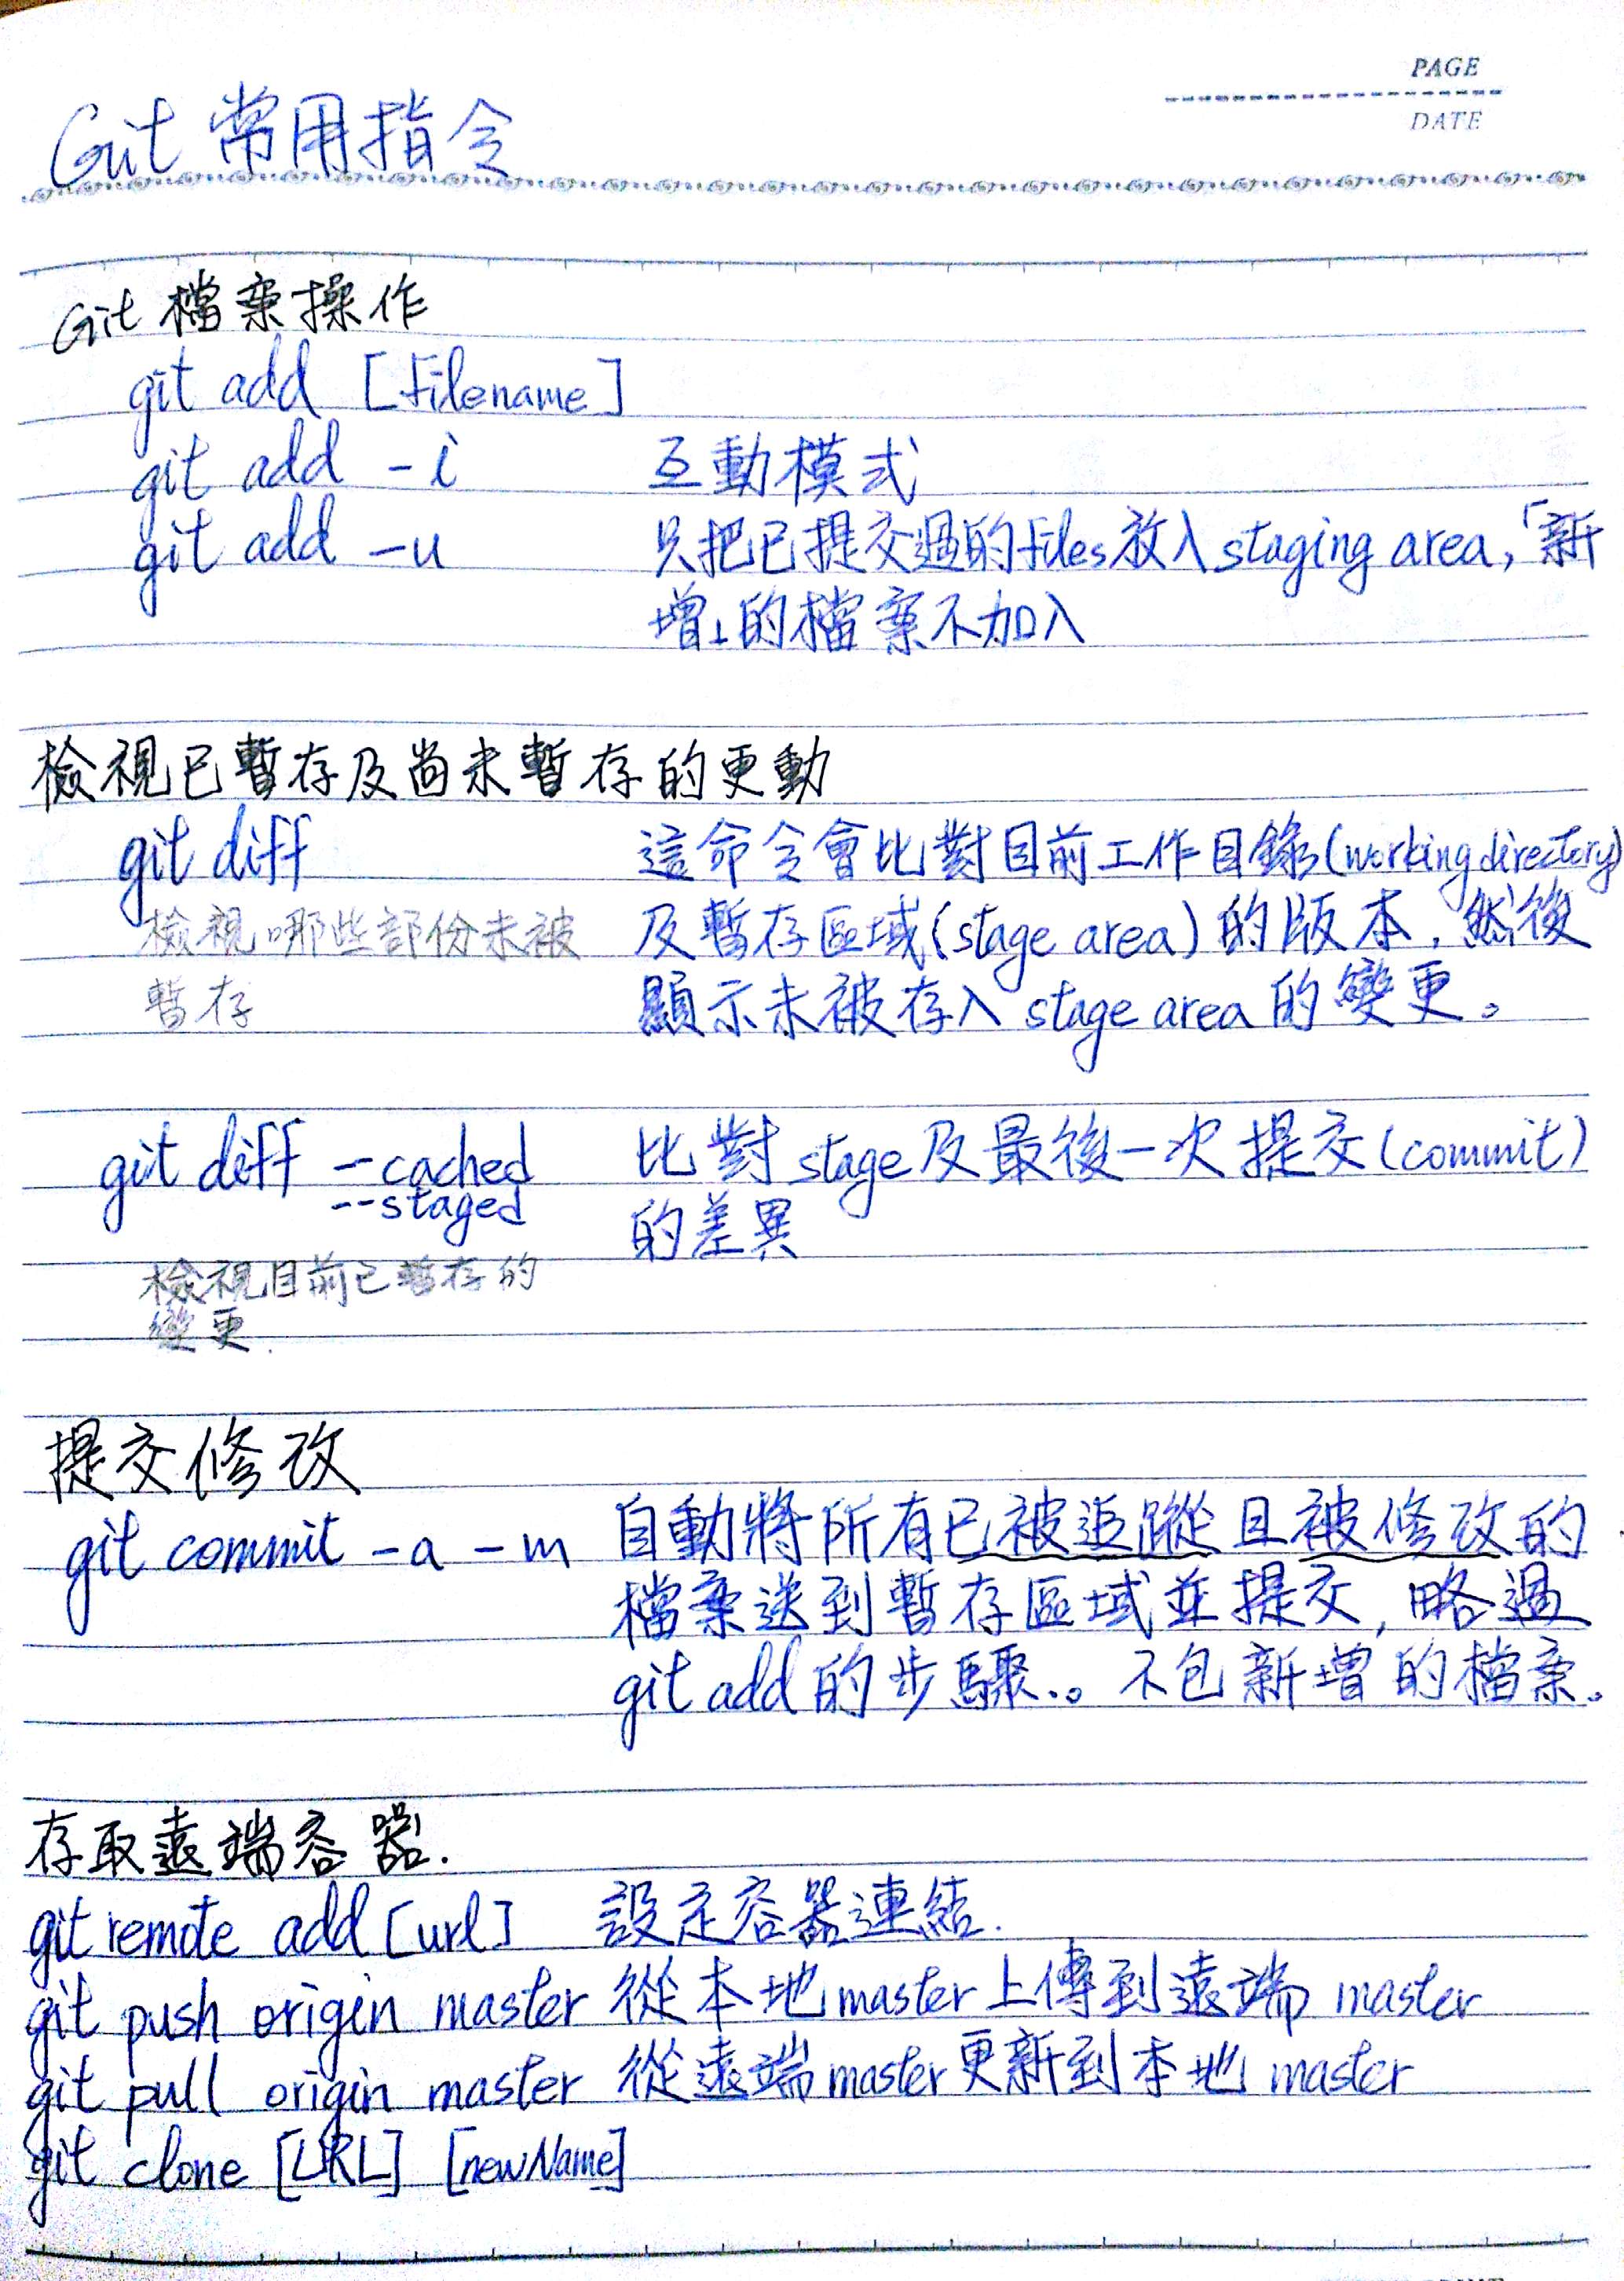 PAGE
DATE
Git 常用指令
Git 檔案操作
git add [filename]
git add -i 互動模式
git add -u 只把已提交過的files放入staging area,「新
增」的檔案不加入
檢視已暫存及尚未暫存的更動
git diff 這命令會比對目前工作目錄(working directory)
檢視哪些部份未被 及暫存區域(stage area)的版本,然後
暫存 顯示未被存入 stage area 的變更。
git diff --cached 比對 stage 及最後一次提交(commit)
--staged 的差異
檢視目前已暫存的
變更.
提交修改
git commit -a -m 自動將所有已被追蹤且被修改的
檔案送到暫存區域並提交,略過
git add 的步驟.。不包新增的檔案。
存取遠端容器.
git remote add [url] 設定容器連結.
git push origin master 從本地 master 上傳到遠端 master
git pull origin master 從遠端 master 更新到本地 master
git clone [URL] [newName]